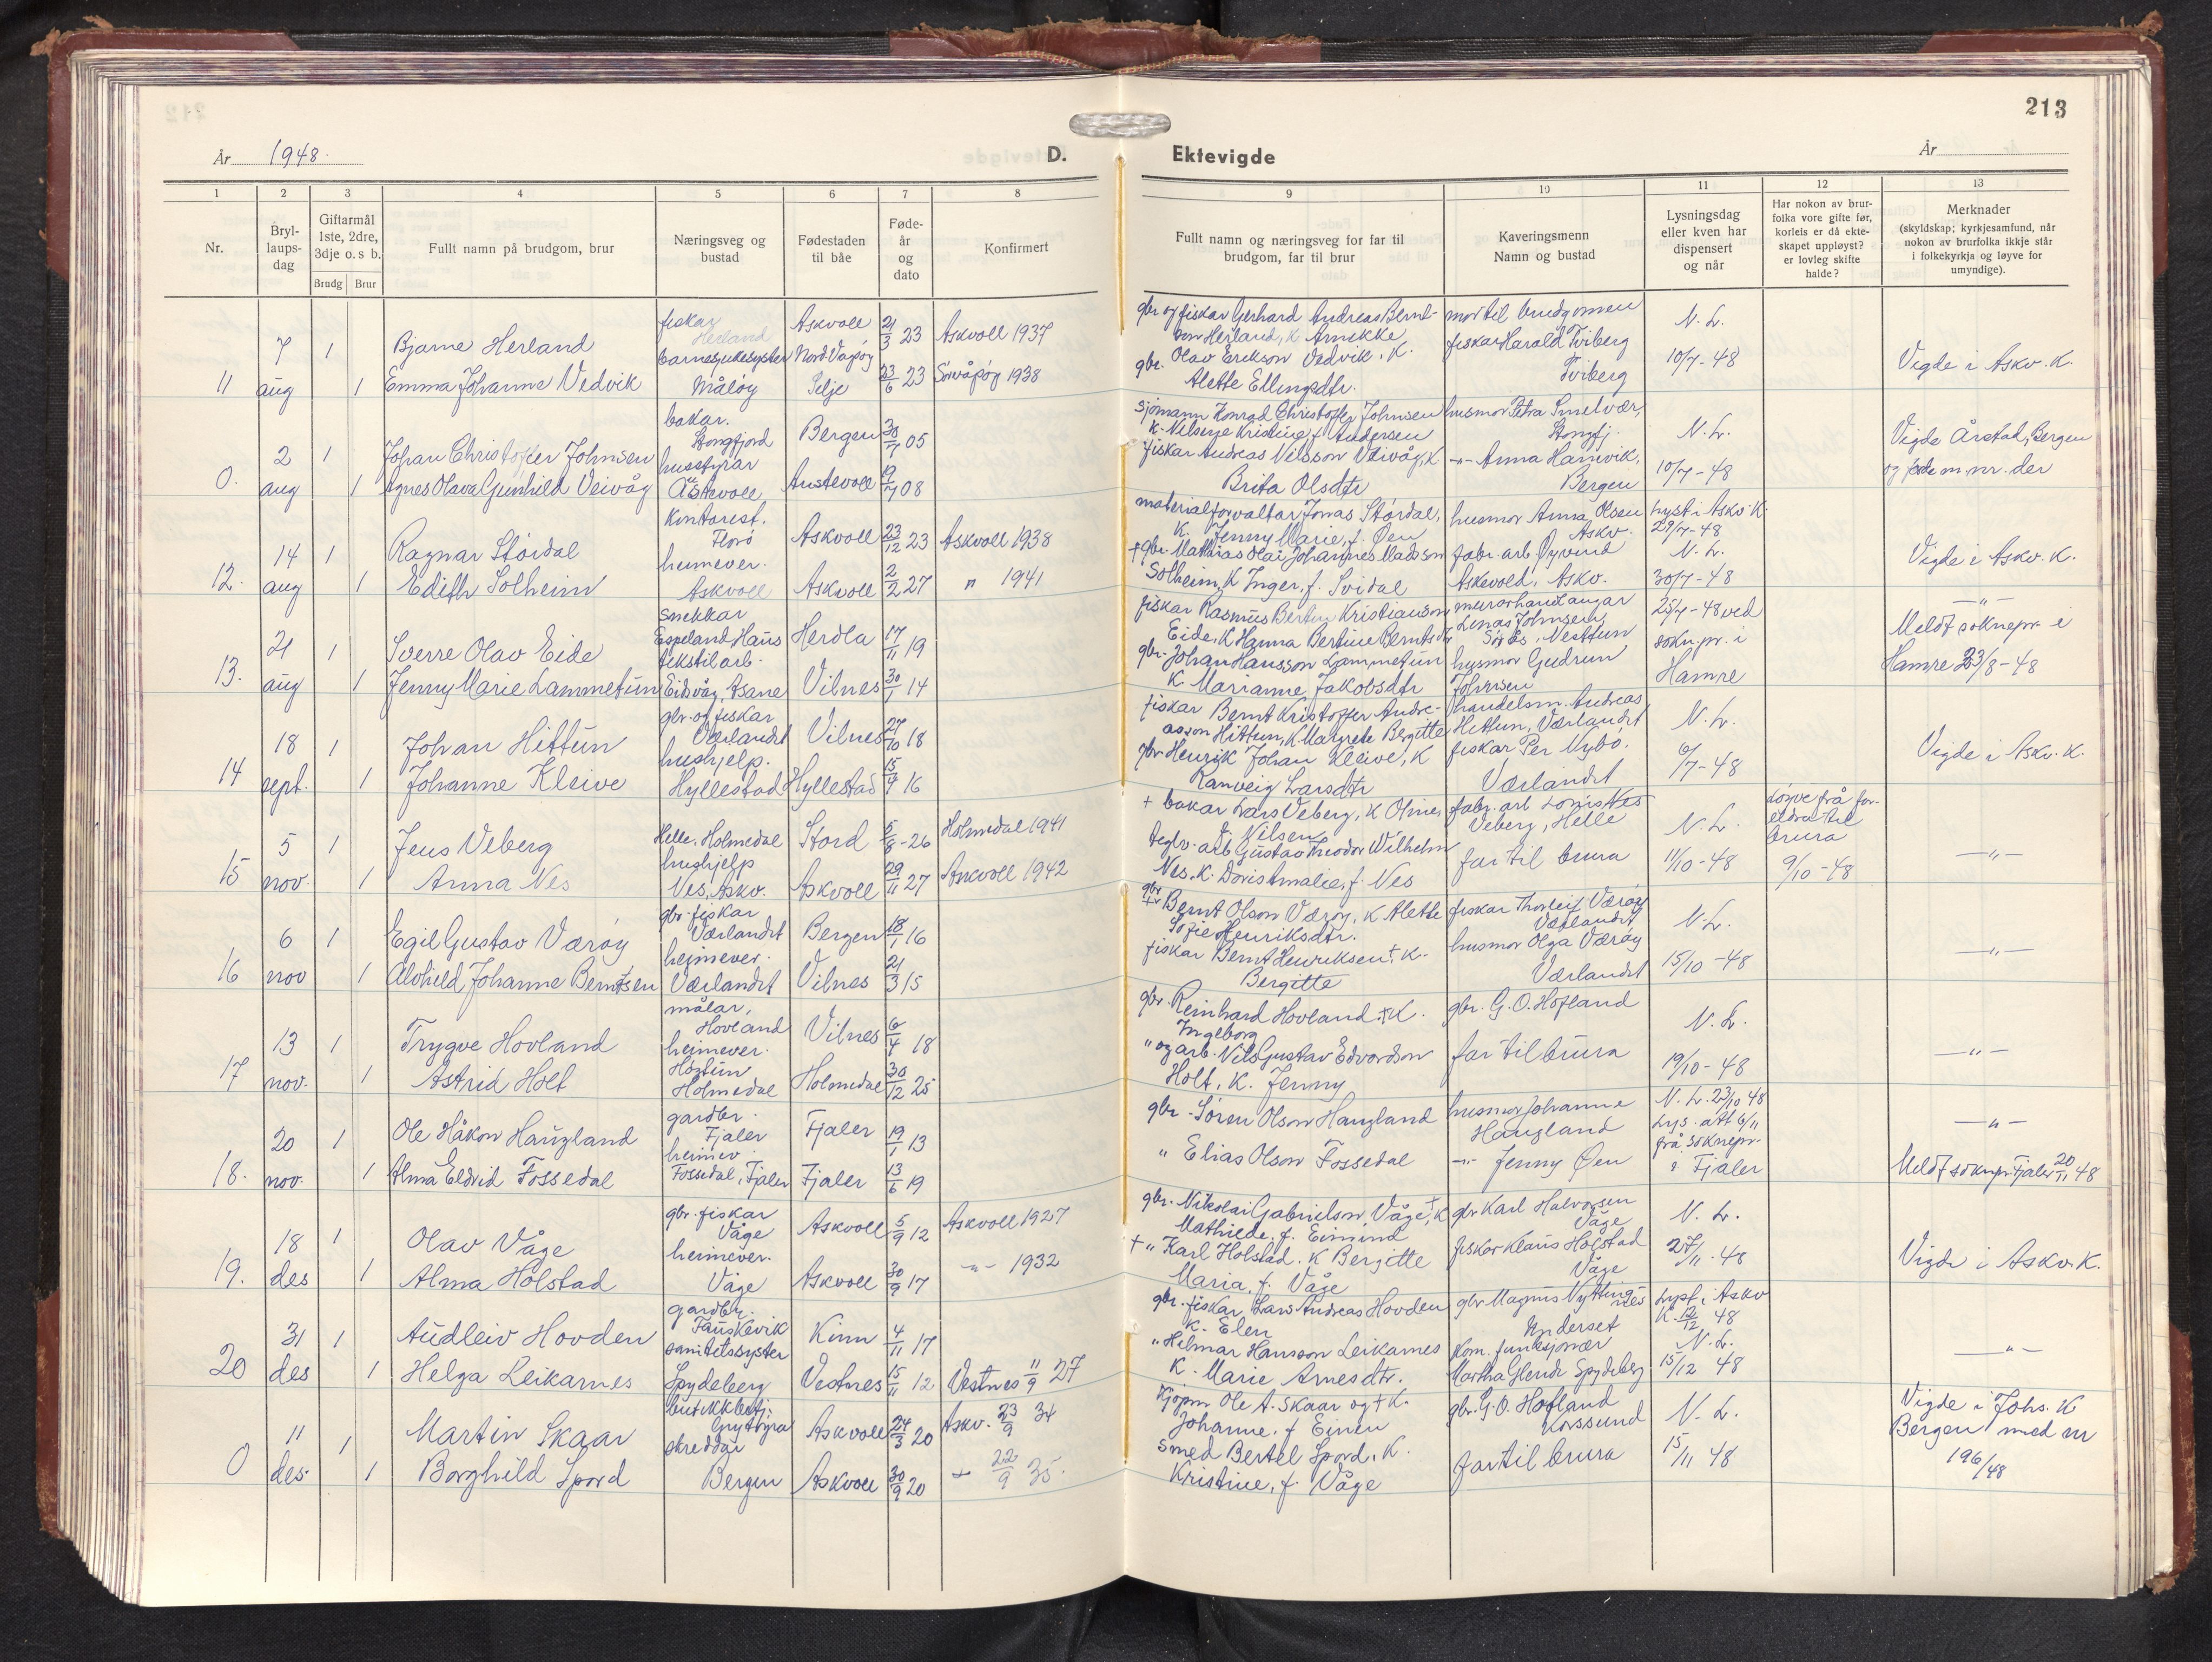 213
År 1948.
D. Ektevigde
År
1 2 3 4 5 6 7 8 9 10 11 12 13
Nr.
Bryl-
laups-
dag
Giftarmål
1ste, 2dre,
3dje o. s b.
Brudg Brur
Fullt namn på brudgom, brur
Næringsveg og
bustad
Fødestaden
til båe
Føde-
år
og
dato
Konfirmert
Fullt namn og næringsveg for far til
brudgom, far til brur
Kaveringsmenn
Namn og bustad
Lysningsdag
eller kven har
dispensert
og når
Har nokon av brur-
folka vore gifte før,
korleis er då ekte-
skapet uppløyst?
er lovleg skifte
halde?
Merknader
(skyldskap; kyrkjesamfund, når
nokon av brurfolka ikkje står
i folkekyrkja og løyve for
umyndige).
11
7 aug
1
Bjarne Herland
fiskar
Herland
Askvoll
21/3 23
Askvoll 1937
gbr og fiskar Gerhard Andreas Bernt-
son Herland, K Annikke
mor til brudgomen
N. L.
1
Emma Johanne Vedvik
barnesjukesyster
Måløy
Nord Vågsøy
Selje
23/6 23
Sørvågsøy 1938
gbr. Olav Erikson Vedvik. K.
Alette Ellingsdtr.
fiskar Harald Tviberg
Tviberg
10/7-48
Vigde i Askv. K.
0.
2 aug
1
Johan Christoffer Johnsen
bakar.
Stongfjord
Bergen
30/7 05
sjømann Konrad Christoffer Johnsen
K. Nilsine Kristine f. Andersen
husmor Petra Smelvær,
Stongfj
N. L.
1
Agnes Olava Gunhild Veivåg
husstyrar
Austevoll
Austevoll
19/7 08
fiskar Andreas Nilsson Veivåg, K
Brita Olsdtr
-"- Anna Hamvik,
Bergen
10/7-48
Vigde Årstad, Bergen
og førde m. nr. der
12.
14 aug
1
Ragnar Stórdal
kontorist.
Florø
Askvoll
23/12 23
Askvoll 1938
materialforvaltar Jonas Stórdal,
K. Jenny Marie, f. Øen
husmor Anna Olsen
Askv.
Lyst i Askv. K.
29/7-48
1
Edith Solheim
heimever.
Askvoll
Askvoll
2/2 27
" 1941
+ gbr. Mathias Olai Johannes Madsson
Solheim, K Inger, f. Svidal
fabr. arb Øyvind
Askevold, Askv.
N. L.
30/7-48
Vigde i Askv. K.
13.
21 aug
1
Sverre Olav Eide
snekkar
Espeland, Haus
Herdla
17/11 19
fiskar Rasmus Bertin Kristianson
Eide, K Hanna Bertine Berntsdtr
murarhandlangar
Lenas Johnsen,
Sør Ås, Nesttun
25/7-48 ved
sokn. pr. i
Hamre
-"-
1
Jenny Marie Lammetun
tekstilarb.
Eidsvåg, Åsane
Vilnes
30/1 14
gbr. Johan Hansson Lammetun
K. Marianne Jakobsdtr
husmor Gudrun
Johnsen
Meldt soknepr. i
Hamre 23/8-48
14
18 sept.
1
Johan Hittun
gbr. og fiskar
Værlandet
Vilnes
27/10 18
fiskar Bernt Kristoffer Andre-
asson Hittun, K Margrete Bergitte
handelsm. Andreas
Hittun, Værlandet
N. L.
1
Johanne Kleive
hushjelp.
Hyllestad
Hyllestad
15/4 16
gbr Henrik Johan Kleive, K
Ranveig Larsdtr
fiskar Per Nybö.
Værlandet
6/7-48
Vigde i Askv. K.
15
5 nov.
1
Jens Veberg
Helle, Holmedal
Stord
5/8-26
Holmedal 1941
+ bakar Lars Veberg, K Oline,
f. Nilsen
fabr. arb Lovis Nes
Veberg, Helle
N. L.
Løyve frå for-
eldra til
brura
9/10-48
1
Anna Nes
hushjelp
Nes, Askv.
Askvoll
29/11 27
Askvoll 1942
teglv. arb Gustav Theodor Wilhelm
Nes, K. Doris Amalie, f. Nes
far til brura
11/10-48
-"-
16
6 nov
1
Egil Gustav Værøy
gbr. fiskar
Værlandet
Bergen
18/1 16
gbr + Bernt Olson Værøy, K Alette
Sofie Henriksdtr.
fiskar Thorleif Værøy
Værlandet
N. L.
1
Alvhild Johanne Berntsen
heimever.
Værlandet
Vilnes
21/3 15
fiskar Bernt Henriksen +. K.
Bergitte
husmor Olga Værøy
Værlandet
15/10-48
-"-
17
13 nov.
1
Trygve Hovland
målar,
Hovland
Vilnes
6/4 18
gbr. Reinhard Hovland. + K.
Ingeborg
gbr. G. O. Hofland
N. L.
1
Astrid Holt
heimever.
Holmedal
Holmedal
30/12 25
" og arb. Nils Gustav Edvardson
Holt, K. Jenny
far til brura
19/10-48
-"-
18.
20 nov.
1
Ole Håkon Haugland
gardbr.
Fjaler
Fjaler
19/1 13
gbr. Søren Olson Haugland
husmor Johanne
Haugland
N. L. 23/10 48
Lys. att 6/11
frå soknepr.
i Fjaler
-"-
1
Alma Eldrid Fossedal
heimev.
Fossedal, Fjaler
Fjaler
13/6 19
" Elias Olson Fossedal
-"- Jenny Øen
Meldt soknpr. Fjaler 20/11 48
19.
18 des
1
Olav Våge
gbr. fiskar
Våge
Askvoll
5/9 12
Askvoll 1927
gbr. Nikolai Gabrielson Våge +, K
Mathilde, f. Eimind
gbr Karl Halvorsen
Våge
N. L.
1
Alma Holstad
heimever.
Våge
Askvoll
30/9 17
-"- 1932
+ " Karl Holstad. K Bergitte
Maria, f. Våge
fiskar Klaus Holstad
Våge
27/11-48
Vigde i Askv. K.
20
31 des
1
Audleiv Hovden
gardbr.
Fauskevik
Kinn
4/11 17
gbr. fiskar Lars Andreas Hovden
K. Elen
gbr Magnus Nyttingnes
Underset
Lyst i Askv
K. 12/12 48
1
Helga Leikarnes
sanitetssyster
Spydeberg
Vestnes
15/11 12
Vestnes 11/9 27
" Hilmar Hansson Leikarnes
K. Marie Arnesdtr.
Kom. funksjonær
Martha Glende Spydeberg
N. L.
15/12 48
-"-
0
11 des.
1
Martin Skaar
butikkbetj.
Grytøyra
Askvoll
24/3 20
Askv. 23/9 34
Kjøpm Ole A. Skaar og + K.
Johanne, f Einen
gbr. G. O. Hofland
Korssund
N. L.
1
Borghild Spord
skreddar
Bergen
Askvoll
30/9 20
-"- 22/9 35.
smed Bertel Spord, K.
Kristine, f. Våge
far til brura
15/11 48
Vigde i Johs. K
Bergen med nr
196/48